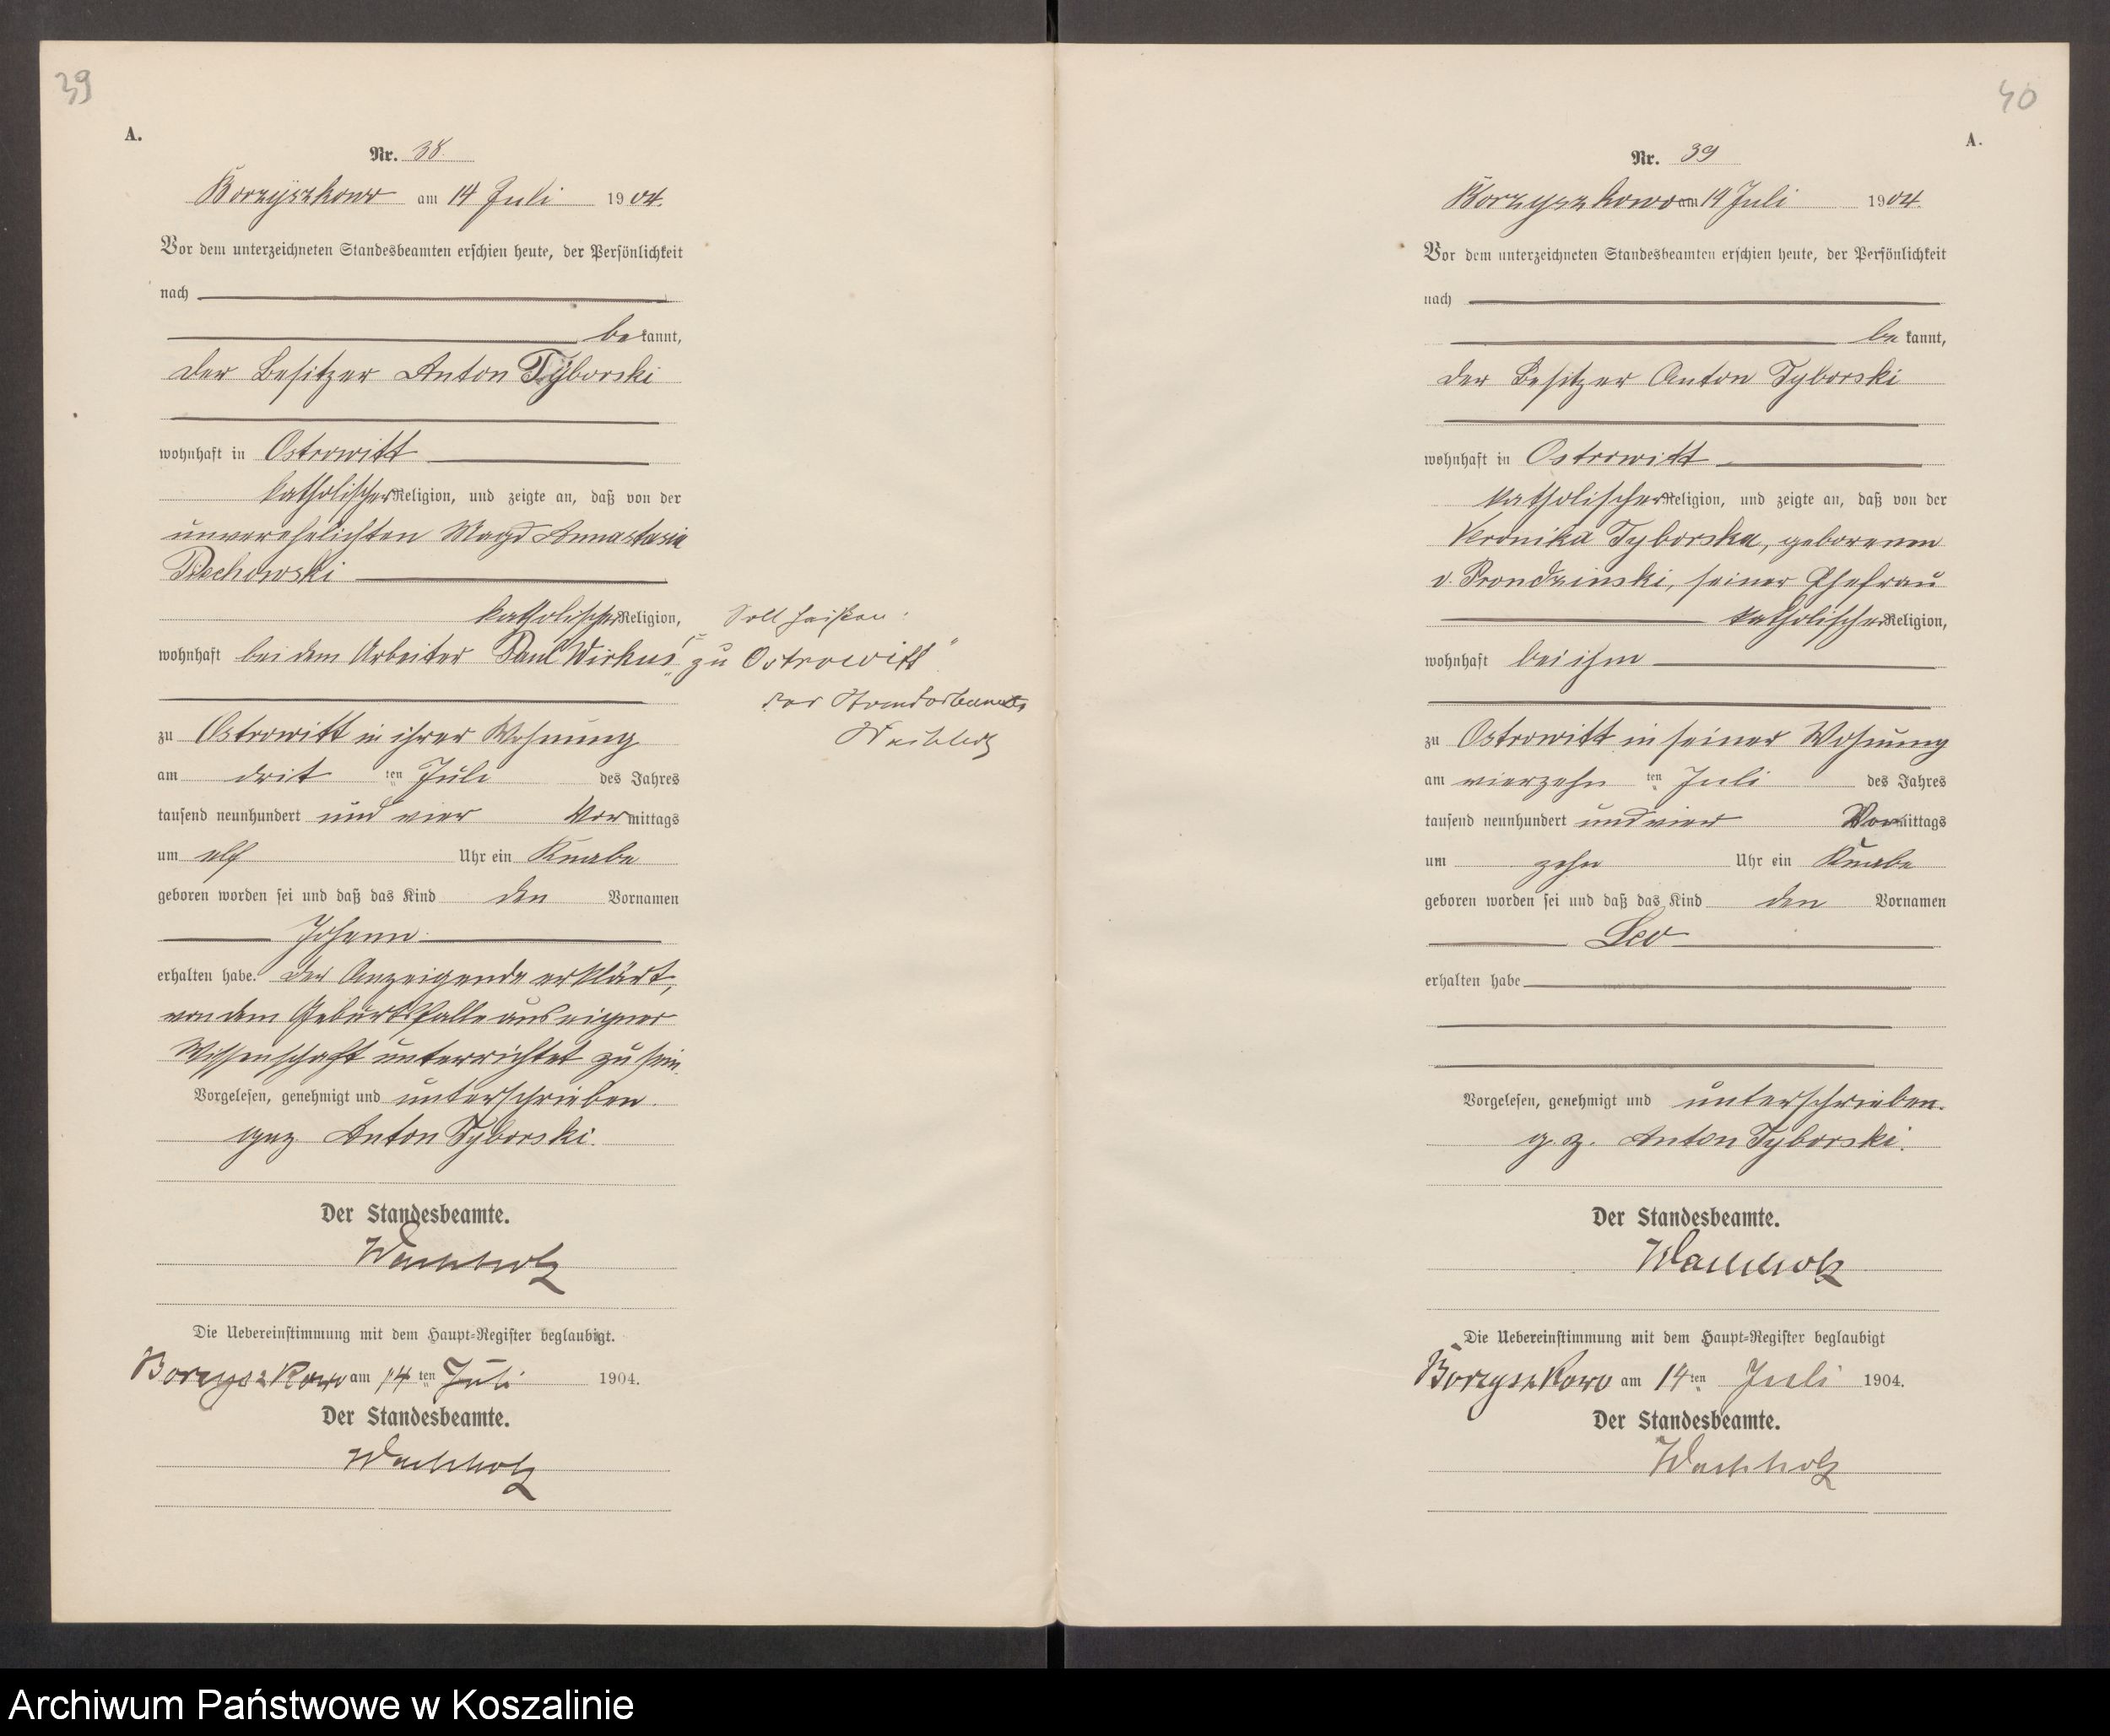 39
A.
Nr. 38.
Borzyszkowo am 14 Juli 1904.
Vor dem unterzeichneten Standesbeamten erschien heute, der Persönlichkeit
nach
bekannt,
der Besitzer Anton Tyborski
wohnhaft in Ostrowitt
katholischer Religion, und zeigte an, daß von der
unverehelichten Magd Annastasia
Piechowski
katholischer Religion,
wohnhaft bei dem Arbeiter Paul Wirkus
zu Ostrowitt in ihrer Wohnung
am drit ten Juli des Jahres
tausend neunhundert und vier Vormittags
um elf Uhr ein Knabe
geboren worden sei und daß das Kind den Vornamen
Johann
erhalten habe. Der Anzeigende erklärt,
von dem Geburtsfalle aus eigner
Wissenschaft unterrichtet zu sein.
Vorgelesen, genehmigt und unterschrieben.
gez Anton Tyborski.
Der Standesbeamte.
Wachholz
Die Uebereinstimmung mit dem Haupt-Register beglaubigt.
Borzyszkowo am 14ten Juli 1904.
Der Standesbeamte.
Wachholz
Soll heißen:
"zu Ostrowitt"
Der Standesbeamte
Wachholz
40
A.
Nr. 39
Borzyszkowo am 14 Juli 1904.
Vor dem unterzeichneten Standesbeamten erschien heute, der Persönlichkeit
nach
bekannt,
der Besitzer Anton Tyborski
wohnhaft in Ostrowitt
katholischer Religion, und zeigte an, daß von der
Veronika Tyborska, geborenen
v. Prondzinski, seiner Ehefrau
katholischer Religion,
wohnhaft bei ihm
zu Ostrowitt in seiner Wohnung
am vierzehn ten Juli des Jahres
tausend neunhundert und vier Vormittags
um zehn Uhr ein Knabe
geboren worden sei und daß das Kind den Vornamen
Leo
erhalten habe
Vorgelesen, genehmigt und unterschrieben.
g. z. Anton Tyborski.
Der Standesbeamte.
Wachholz
Die Uebereinstimmung mit dem Haupt-Register beglaubigt
Borzyszkowo am 14ten Juli 1904.
Der Standesbeamte.
Wachholz
Archiwum Państwowe w Koszalinie